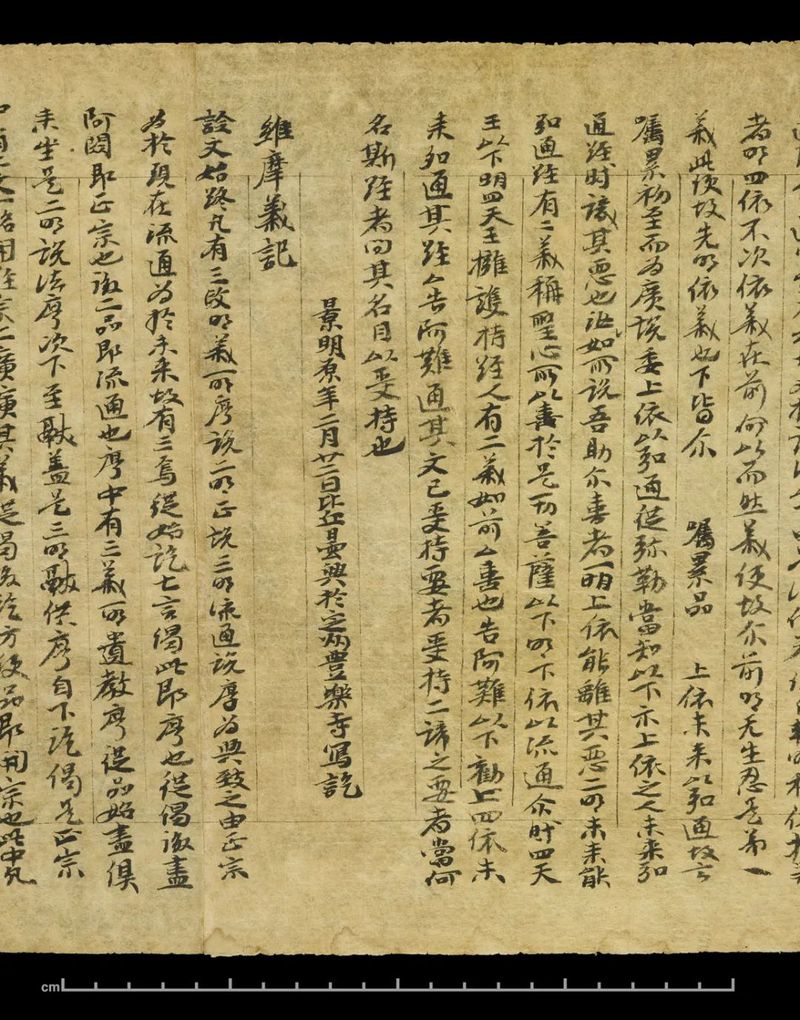 者明四依不次依義在前何以而然義便故尒前明无生忍是第一
義此領故先明依義也下皆尒 囑累品 上依未来以弘通故言
囑累初至而為廣説委上依以弘通從弥勒當知以下示上依之人未来弘
通経時護其惡也汝如所説吾助尒喜者一明上依能離其惡二明未来能
弘通経有二義稱聖心所以喜於是一切菩薩以下明下依以流通尒時四天
王以下明四天王擁護持経人有二義如前亼喜也告阿難以下勸上四依未
来弘通其経亼告阿難通其文已受持要者受持二諦之要者當何
名斯経者问其名目以受持也
景明原年二月廿二日比丘曇興於定州豊樂寺寫訖
維摩義記
詮文始終凡有三段明義一明序説二明正説三明流通説序為興致之由正宗
為於現在流通為於未来故有三焉從始訖七言偈此即序也從偈後盡
阿閦即正宗也後二品即流通也序中有三義一明遺教序從品始盡俱
来坐是二明説法序次下至獻盖是三明獻供序自下訖偈是正宗